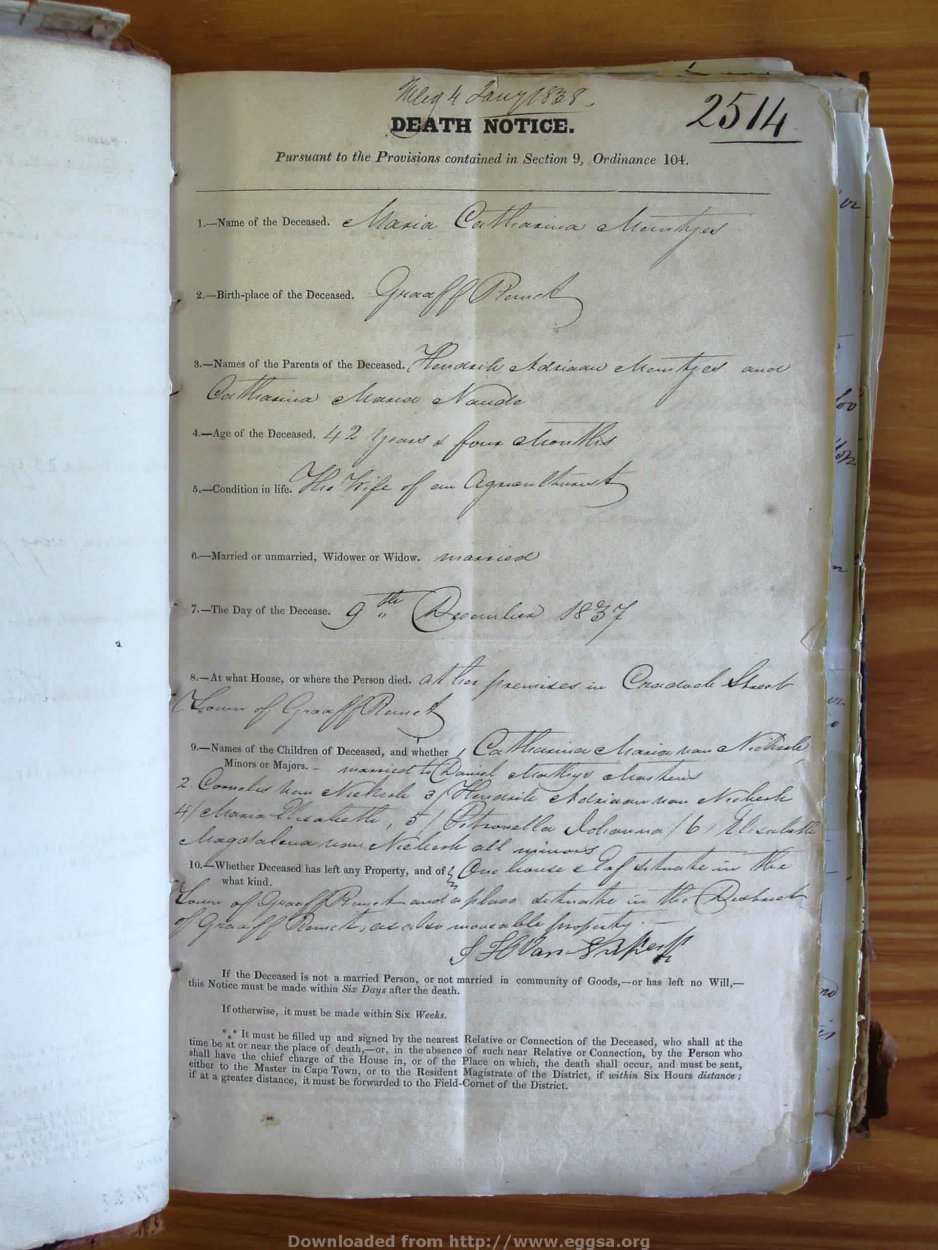 Filed 4 Jany 1838
2514
DEATH NOTICE.
Pursuant to the Provisions contained in Section 9, Ordinance 104.
1.—Name of the Deceased. Maria Catharina Meintjes
2.—Birth-place of the Deceased. Graaff Reinet
3.—Names of the Parents of the Deceased. Hendrik Adriaan Meintjes and
Catharina Maria Naude
4.—Age of the Deceased. 42 years & four Months
5.—Condition in life. The Wife of an Agriculturist
6.—Married or unmarried, Widower or Widow. married
7.—The Day of the Decease. 9th December 1837
8.—At what House, or where the Person died. At her premises in Cradock Street
Town of Graaff Reinet
9.—Names of the Children of Deceased, and whether 1/ Catharina Maria van Niekerk
Minors or Majors. - married to Daniel Mathys Martens
2 Cornelis van Niekerk 3/ Hendrik Adriaan van Niekerk
4/ Maria Elisabeth, 5/ Petronella Johanna / 6/ Elisabeth
Magdalena van Niekerk all minors
10.—Whether Deceased has left any Property, and of One house & Erf situate in the
what kind.
Town of Graaff Reinet and a place situate in the District
of Graaff Reinet, as also moveable property
If the Deceased is not a married Person, or not married in community of Goods,—or has left no Will,—
this Notice must be made within Six Days after the death.
If otherwise, it must be made within Six Weeks.
*** It must be filled up and signed by the nearest Relative or Connection of the Deceased, who shall at the
time be at or near the place of death,—or, in the absence of such near Relative or Connection, by the Person who
shall have the chief charge of the House in, or of the Place on which, the death shall occur, and must be sent,
either to the Master in Cape Town, or to the Resident Magistrate of the District, if within Six Hours distance;
if at a greater distance, it must be forwarded to the Field-Cornet of the District.
Downloaded from http://www.eggsa.org